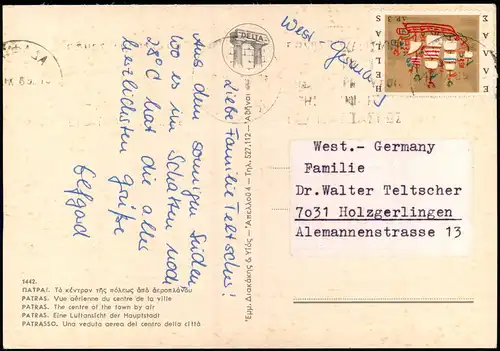 West
Germany
ΕΛΛΑΣ
HELLAS
ΔΡ. 3
DELTA
Liebe Familie Teltscher!
Aus dem sonnigen Süden
wo es im Schatten noch
28°C hat die aller
herzlichsten Grüße
West.- Germany
Familie
Dr.Walter Teltscher
7031 Holzgerlingen
Alemannenstrasse 13
"Εμμ. Διακάκης & Υἱός - Ἀπελλοῦ 4 - Τηλ. 527.112 - Ἀθῆναι
1442.
ΠΑΤΡΑΙ. Τὸ κέντρον τῆς πόλεως ἀπὸ ἀεροπλάνου
PATRAS. Vue aérienne du centre de la ville
PATRAS. The centre of the town by air
PATRAS. Eine Luftansicht der Hauptstadt
PATRASSO. Una veduta aerea del centro della città